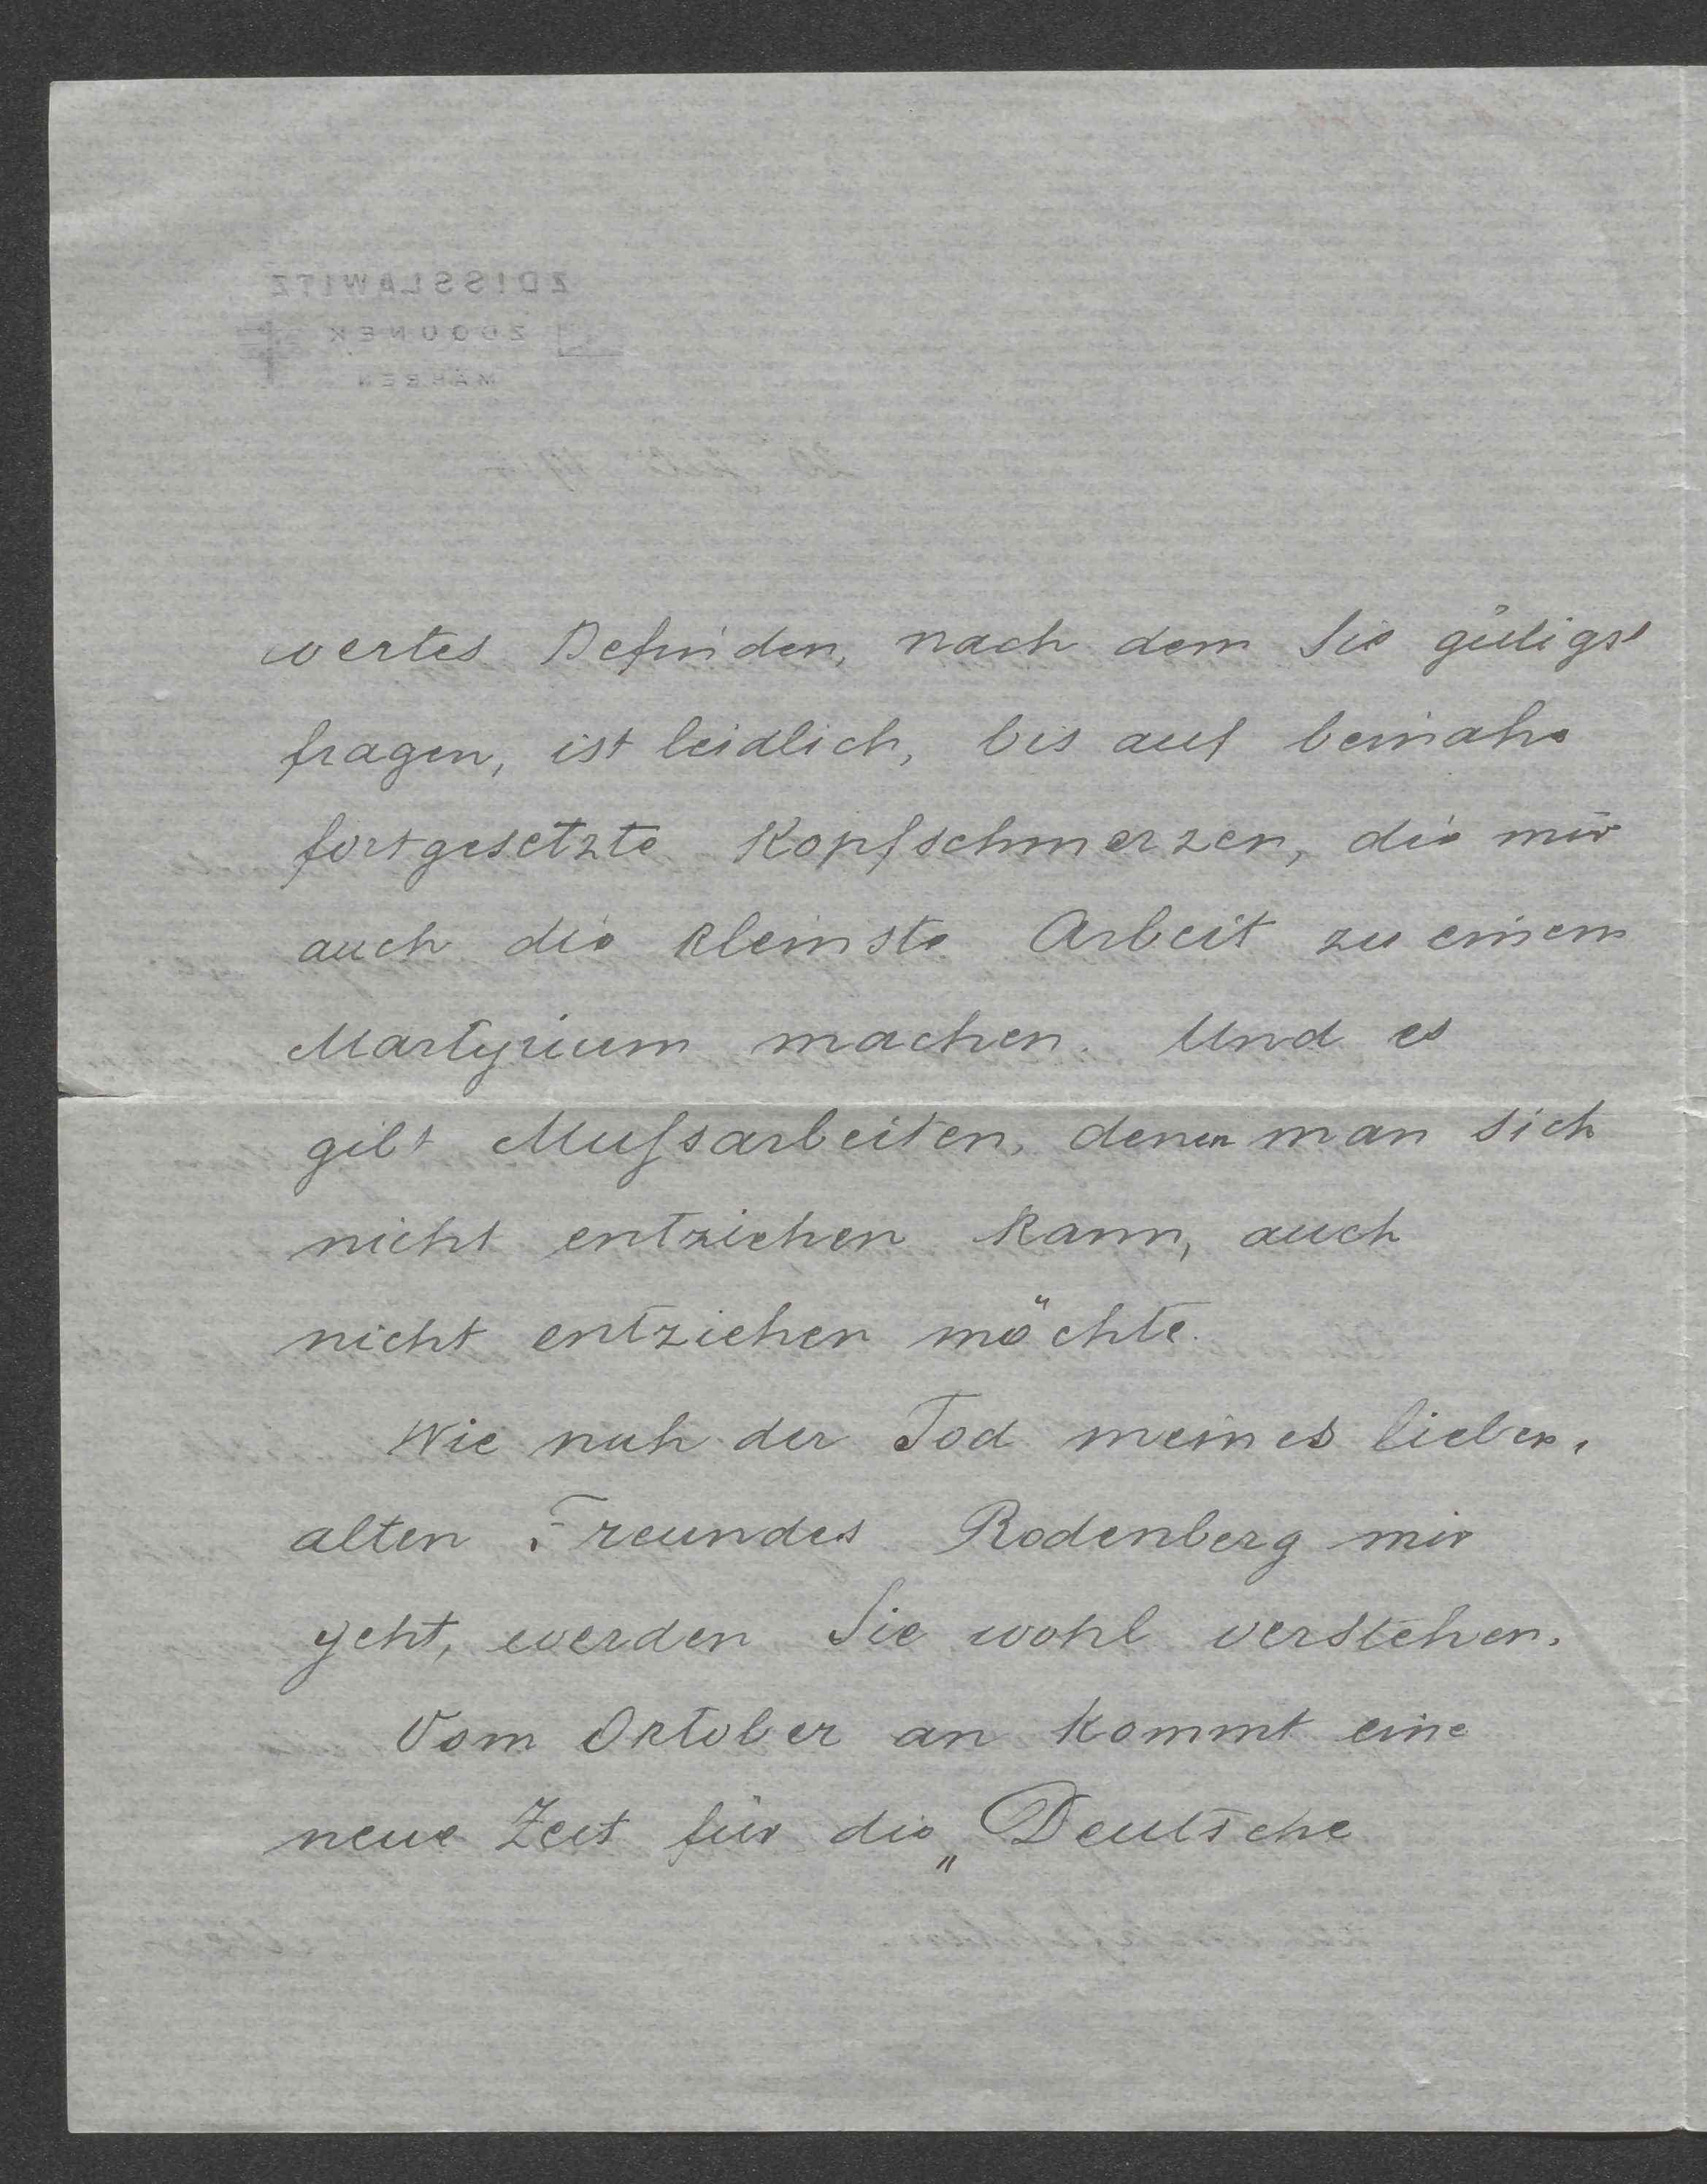 wertes Befinden, nach dem Sie gütigst
fragen, ist leidlich, bis auf beinahe
fortgesetzte Kopfschmerzen, die mir
auch die kleinste Arbeit zu einem
Martyrium machen. Und es
gibt Mußsarbeiten, denen man sich
nicht entziehen kann, auch
nicht entziehen möchte.
Wie nah der Tod meines lieben,
alten Freundes Rodenberg mir
geht, werden Sie wohl verstehen.
Vom Oktober an kommt eine
neue Zeit für die „Deutsche
ZDISSLAWITZ
ZDOUNEK
MÄHREN